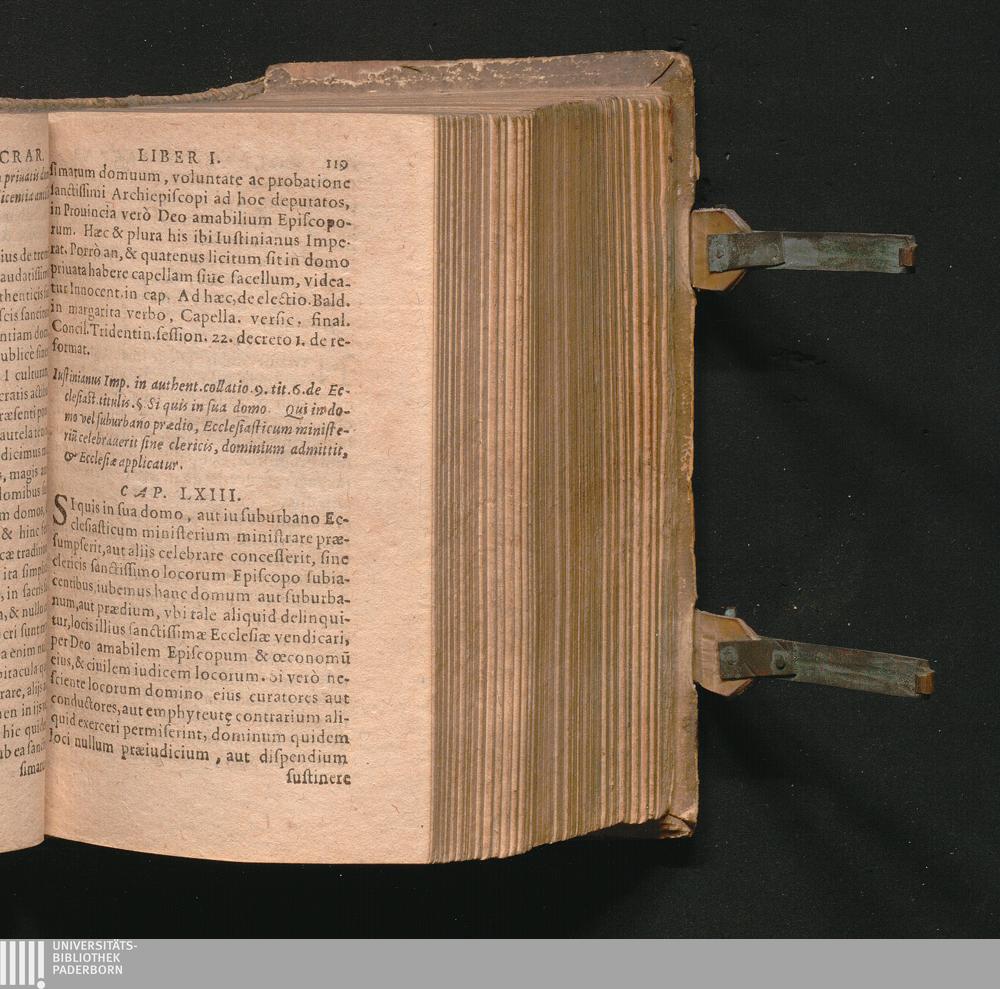 CRAR.
LIBER I. 119
ſimarum domuum, voluntate ac probatione
ſanctiſſimi Archiepiſcopi ad hoc deputatos,
in Prouincia verò Deo amabilium Epiſcopo-
rum. Hæc & plura his ibi Iuſtinianus Impe-
rat. Porrò an, & quatenus licitum ſit in domo
priuata habere capellam ſiue ſacellum, videa-
tur Innocent. in cap. Ad hæc, de electio. Bald.
in margarita verbo, Capella. verſic. final.
Concil. Tridentin. ſeſſion. 22. decreto 1. de re-
format.
Iuſtinianus Imp. in authent. collatio. 9. tit. 6. de Ec-
cleſiaſt. titulis. § Si quis in ſua domo. Qui in do-
mo vel ſuburbano prædio, Eccleſiaſticum miniſte-
riũ celebrauerit ſine clericis, dominium admittit,
& Eccleſiæ applicatur.
CAP. LXIII.
SI quis in ſua domo, aut iu ſuburbano Ec-
cleſiaſticum miniſterium miniſtrare præ-
ſumpſerit, aut aliis celebrare conceſſerit, ſine
clericis ſanctiſſimo locorum Epiſcopo ſubia-
centibus, iubemus hanc domum aut ſuburba-
num, aut prædium, vbi tale aliquid delinqui-
tur, locis illius ſanctiſſimæ Eccleſiæ vendicari,
per Deo amabilem Epiſcopum & œconomũ
eius, & ciuilem iudicem locorum. Si verò ne-
ſciente locorum domino eius curatores aut
conductores, aut emphyteutę contrarium ali-
quid exerceri permiſerint, dominum quidem
loci nullum præiudicium, aut diſpendium
ſuſtinere
UNIVERSITÄTS-
BIBLIOTHEK
PADERBORN